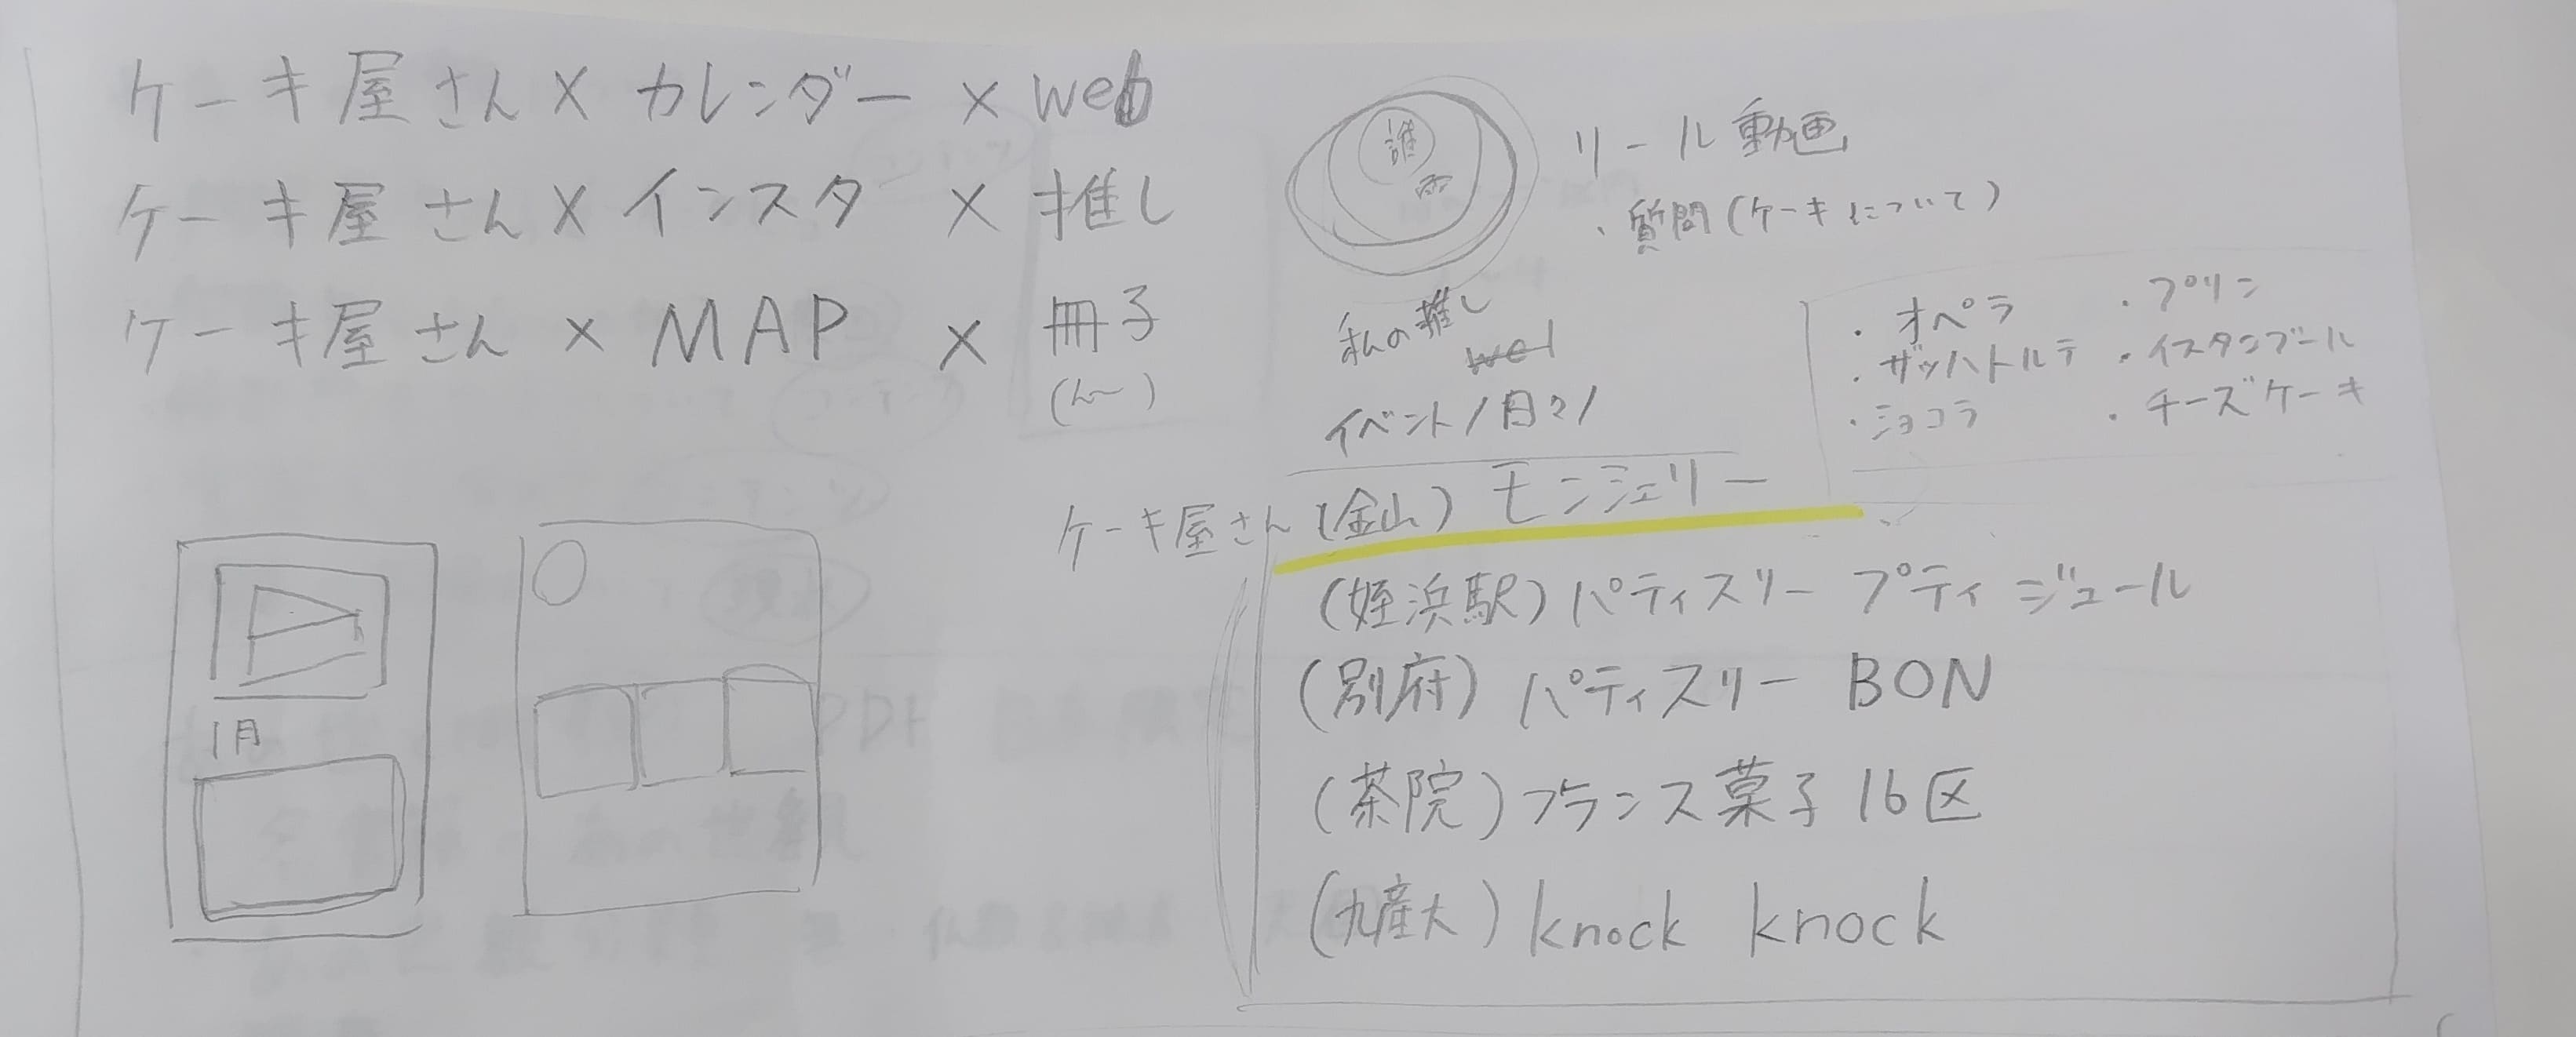 ケーキ屋さん×カレンダー×web
ケーキ屋さん×インスタ×推し
ケーキ屋さん×MAP×冊子
(んー)
1月
誰
リール動画
・質問(ケーキについて)
私の推し
イベント/月々/
・オペラ
・ザッハトルテ
・ショコラ
・プリン
・イスタンブール
・チーズケーキ
ケーキ屋さん(金山)モンシェリー
(姪浜駅)パティスリー プティ ジュール
(別府)パティスリー BON
(茶院)フランス菓子16区
(九産大)knock knock